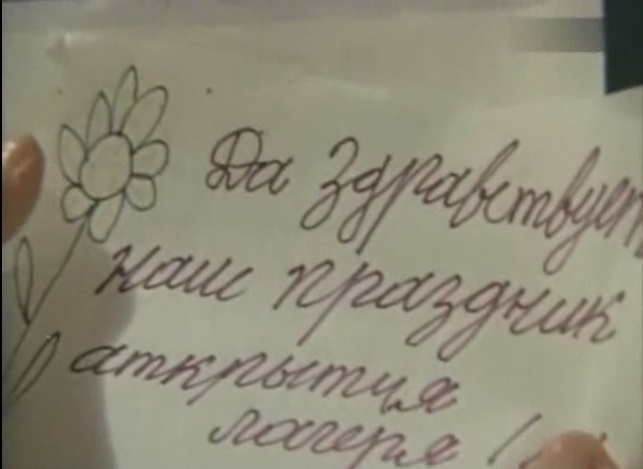 Да здравствует
наш праздник
аткрытия
лагеря!